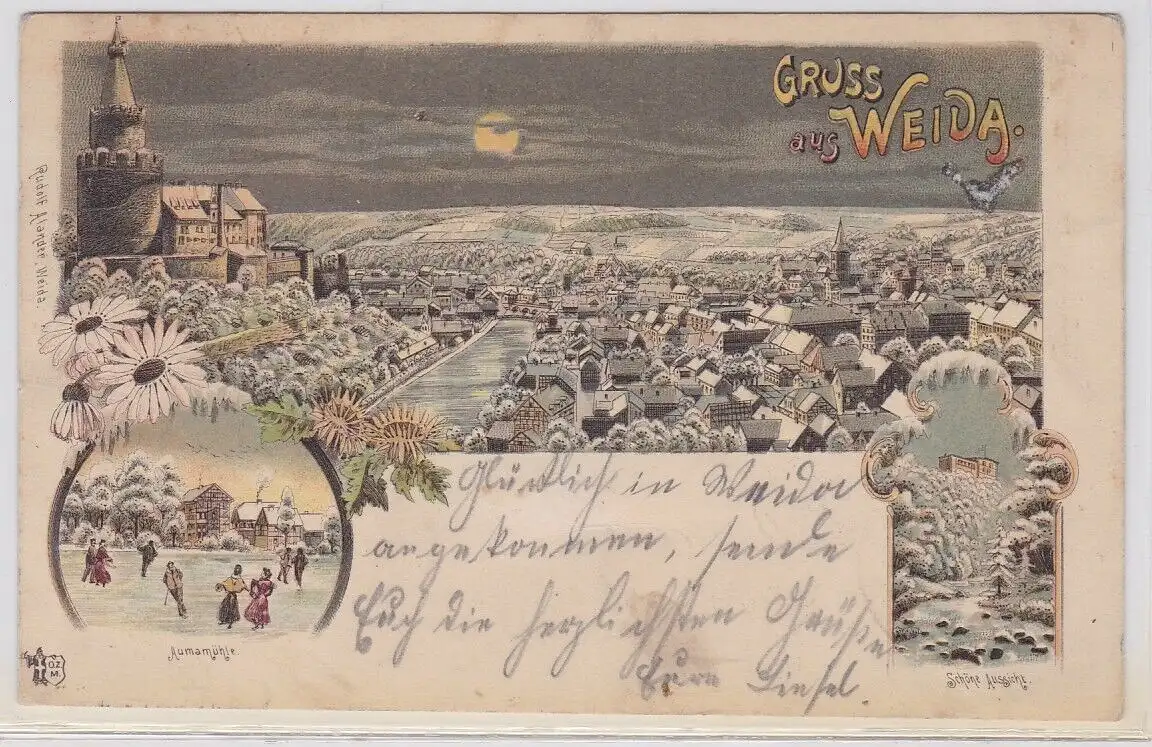 GRUSS
aus WEIDA.
Rudolf Mander, Weida
Glücklich in Weida
angekommen, sende
Euch die herzlichsten Grüße
Eure Liesel.
Aumamühle.
O.Z.
M.
Schöne Aussicht.